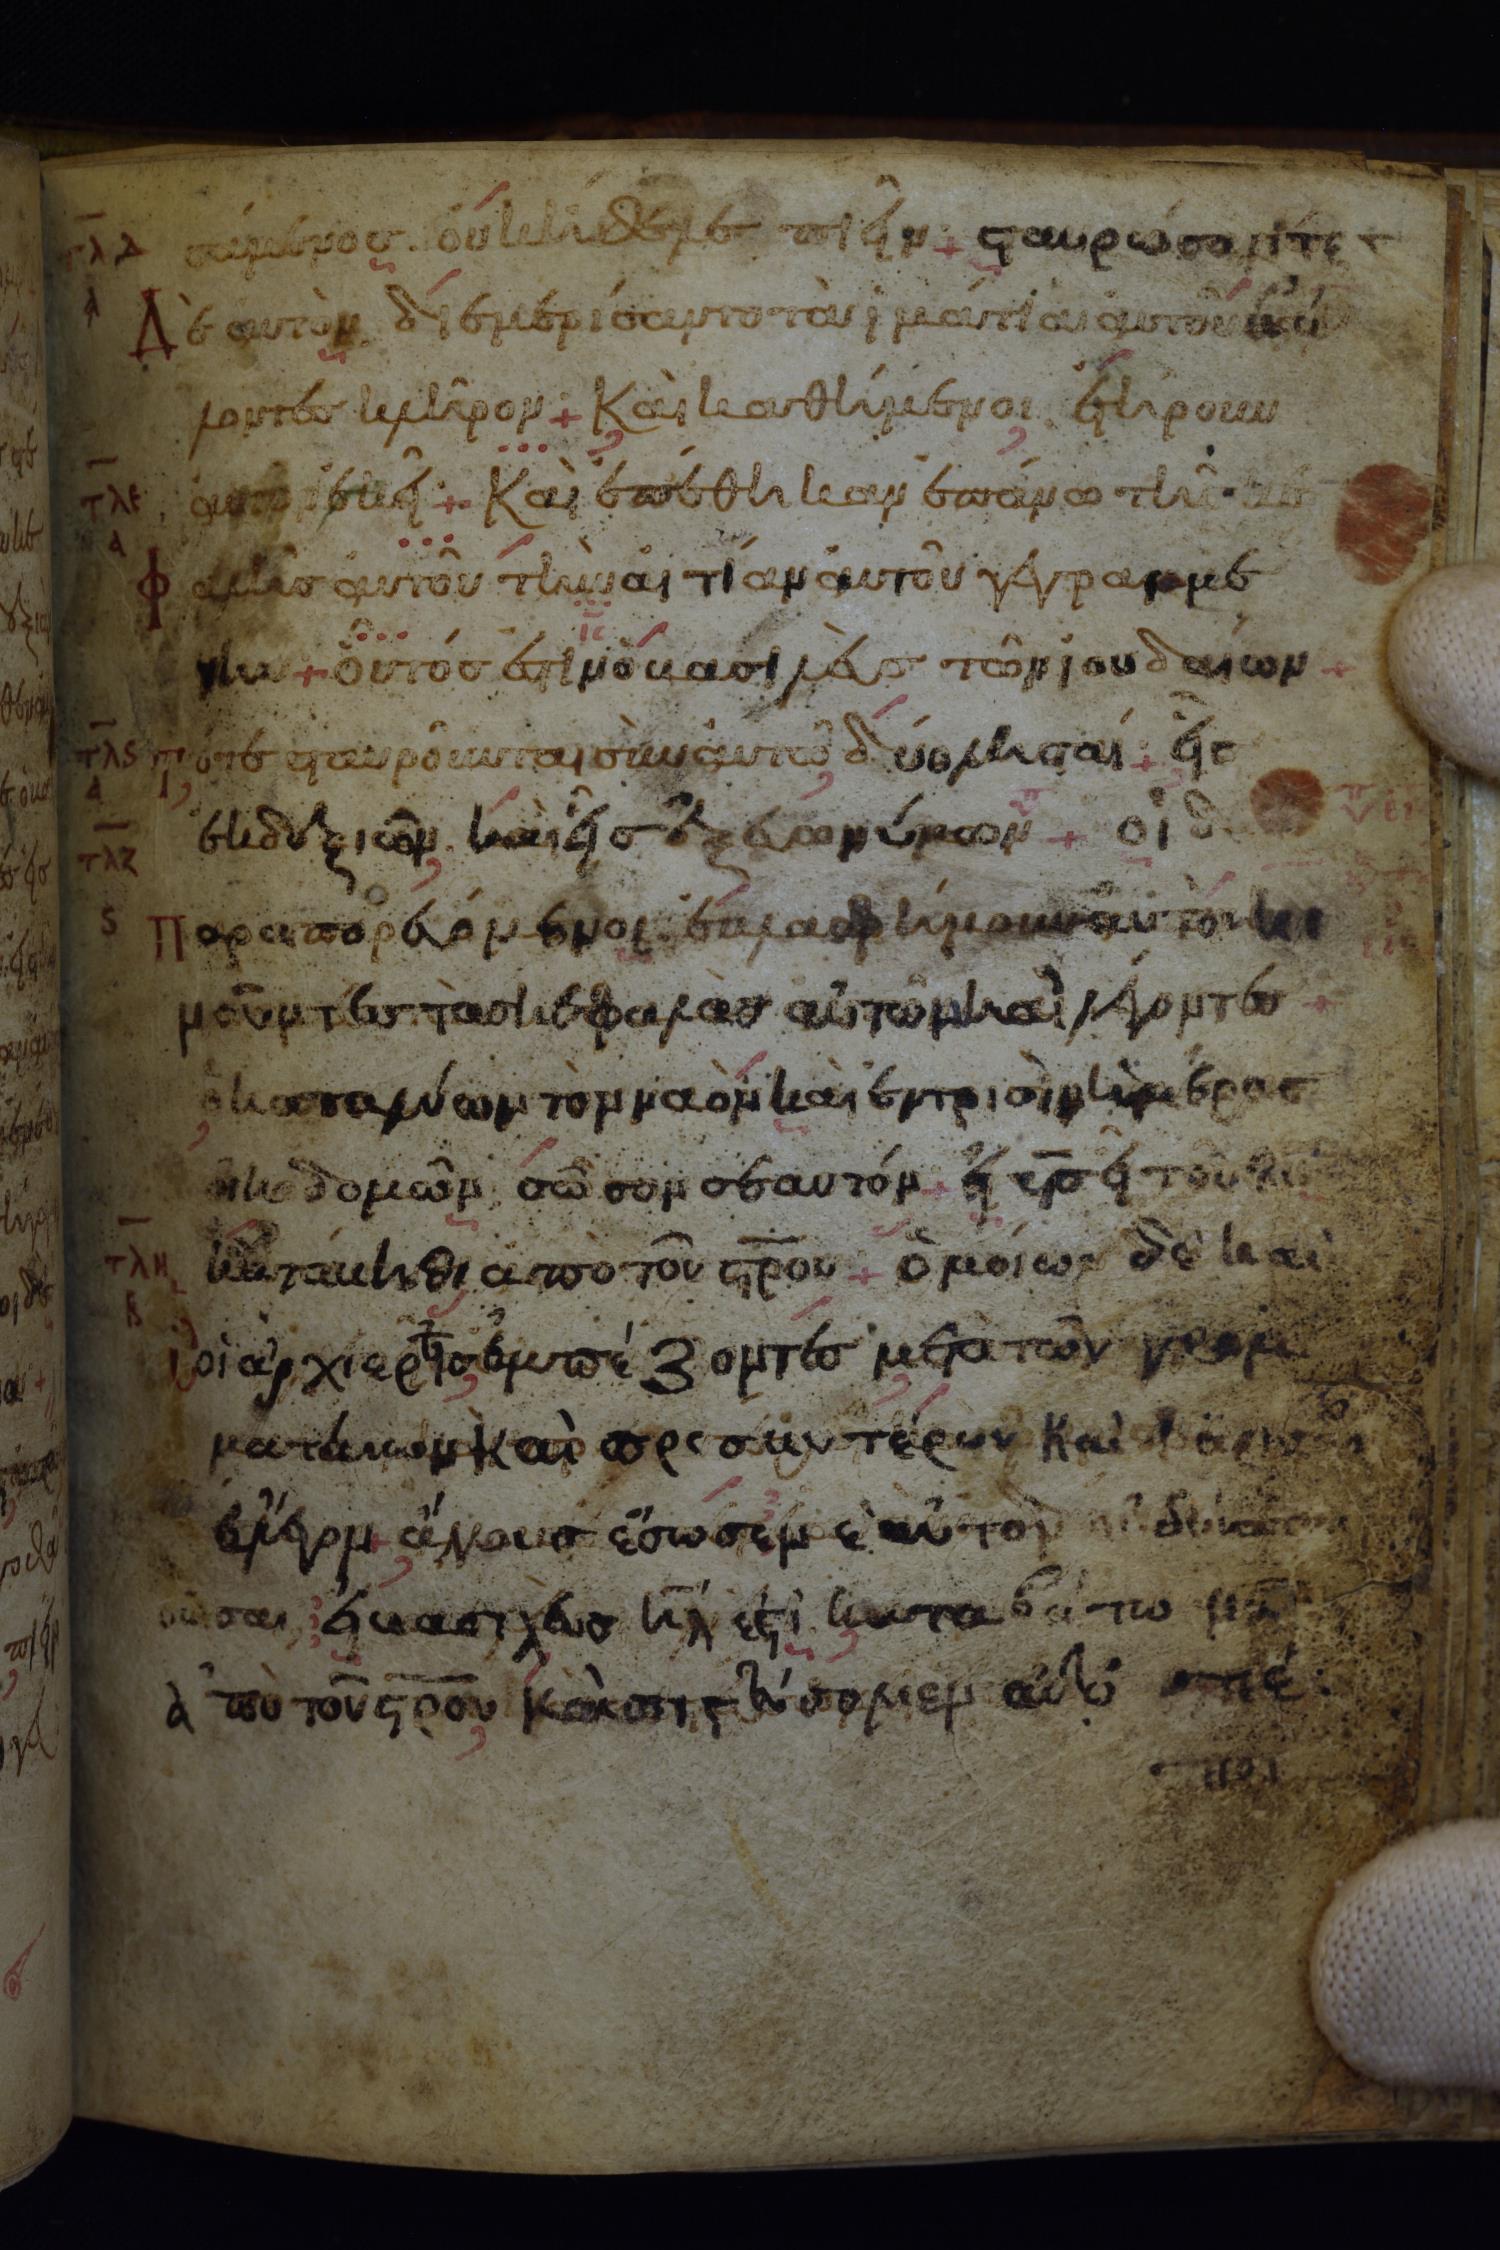 τλδ σάμενος οὐκ ἤθελε πιεῖν + σταυρώσαντες
α Δὲ αὐτὸν διεμερίσαντο τὰ ἱμάτια αὐτοῦ βάλ
λοντες κλῆρον + Καὶ καθήμενοι ἐτήρουν
τλε αὐτὸν ἐκεῖ + Καὶ ἐπέθηκαν ἐπάνω τῆς κε
α φαλῆς αὐτοῦ τὴν αἰτίαν αὐτοῦ γεγραμμέ
νην + οὗτός ἐστιν ὁ βασιλεὺς τῶν ἰουδαίων +
τλς τότε σταυροῦνται σὺν αὐτῷ δύο λησταί + εἷς
α ἐκ δεξιῶν καὶ εἷς ἐξ εὐωνύμων + οἱ δὲ
τλζ
ς Παραπορευόμενοι ἐβλασφήμουν αὐτὸν κι
νοῦντες τὰς κεφαλὰς αὐτῶν καὶ λέγοντες +
ὁ καταλύων τὸν ναὸν καὶ ἐν τρισὶν ἡμέραις
οἰκοδομῶν σῶσον σεαυτόν + εἰ υἱς εἶ τοῦ θυ
τλη κατάβηθι ἀπὸ τοῦ στρου + ὁμοίως δὲ καὶ
β οἱ ἀρχιερεῖς ἐμπέζοντες μετὰ τῶν γραμ
ματέων Καὶ πρεσβυτέρων Καὶ φαρισαίων
ἔλεγον + ἄλλους ἔσωσεν ἑαυτὸν οὐ δύναται
σῶσαι εἰ βασιλεὺς ἰηλ ἐστι καταβάτω νῦν
ἀπὸ τοῦ στρου Καὶ πιστεύσομεν αὐτῷ πέ
ποι